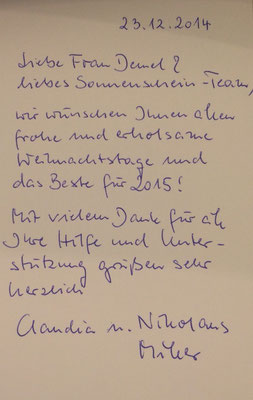 23.12.2014
Liebe Frau Demel &
liebes Sonnenschein-Team,
wir wünschen Ihnen allen
frohe und erholsame
Weihnachtstage und
das Beste für 2015!
Mit vielem Dank für all
Ihre Hilfe und Unter-
stützung grüßen sehr
herzlich
Claudia u. Nikolaus